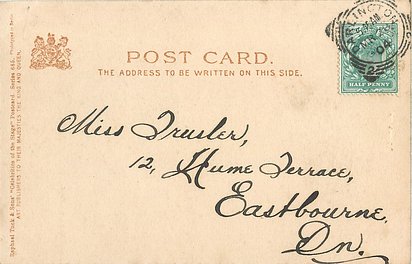 POST CARD.
THE ADDRESS TO BE WRITTEN ON THIS SIDE.
DARLINGTON
04
HALF PENNY
Miss Trusler,
12, Hume Terrace,
Eastbourne,
Dn.
Raphael Tuck & Sons' "Celebrities of the Stage" Postcard. Series 645.
ART PUBLISHERS TO THEIR MAJESTIES THE KING AND QUEEN.